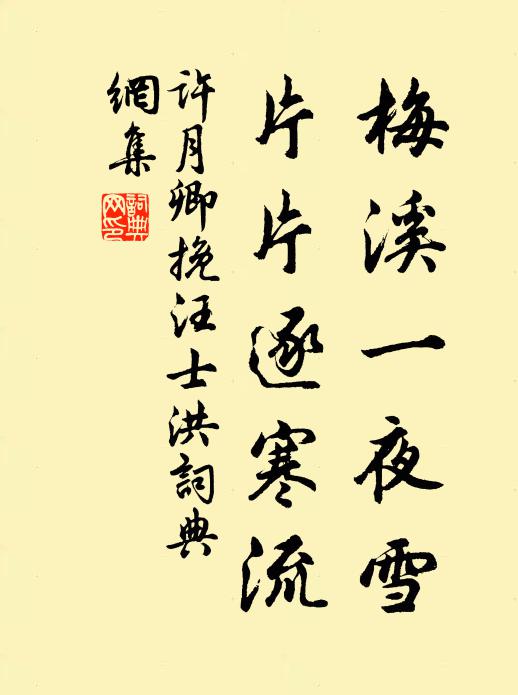 梅溪一夜雪
片片逐寒流
许月卿挽汪士洪詞典
網集
詞典網印